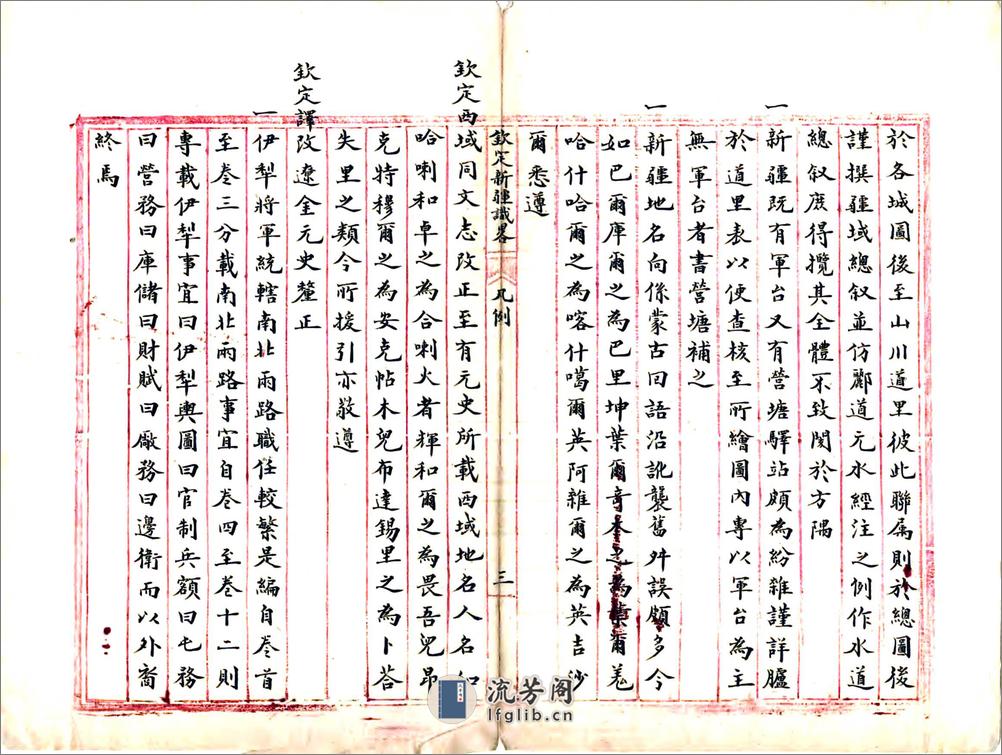 於各城圖後至山川道里彼此聯属則於總圖後
謹撰疆域總叙並仿酈道元水經注之例作水道
總叙庻得攬其全體不致閡於方隅
一新疆旣有軍台又有營塘驛站頗為紛雜謹詳臚
於道里表以便查核至所繪圖內專以軍台為主
無軍台者書營塘補之
一新疆地名向係蒙古回語沿訛襲舊舛誤頗多今
如巴爾庫爾之為巴里坤葉爾奇木之為葉爾羗
哈什哈爾之為喀什噶爾英阿雜爾之為英吉沙
爾悉遵
欽定新疆識畧 凡例 三
欽定西域同文志改正至有元史所載西域地名人名如
哈喇和卓之為合喇火者輝和爾之為畏吾兒昂
克特穆爾之為安克帖木兒布達錫里之為卜荅
失里之類今所援引亦敬遵
欽定譯改遼金元史釐正
一伊犁將軍統轄南北兩路職任較繁是編自卷首
至卷三分載南北兩路事宜自卷四至卷十二則
專載伊犁事宜曰伊犁輿圖曰官制兵額曰屯務
曰營務曰庫儲曰財賦曰厰務曰邊衛而以外裔
終焉
流芳阁
lfglib.cn